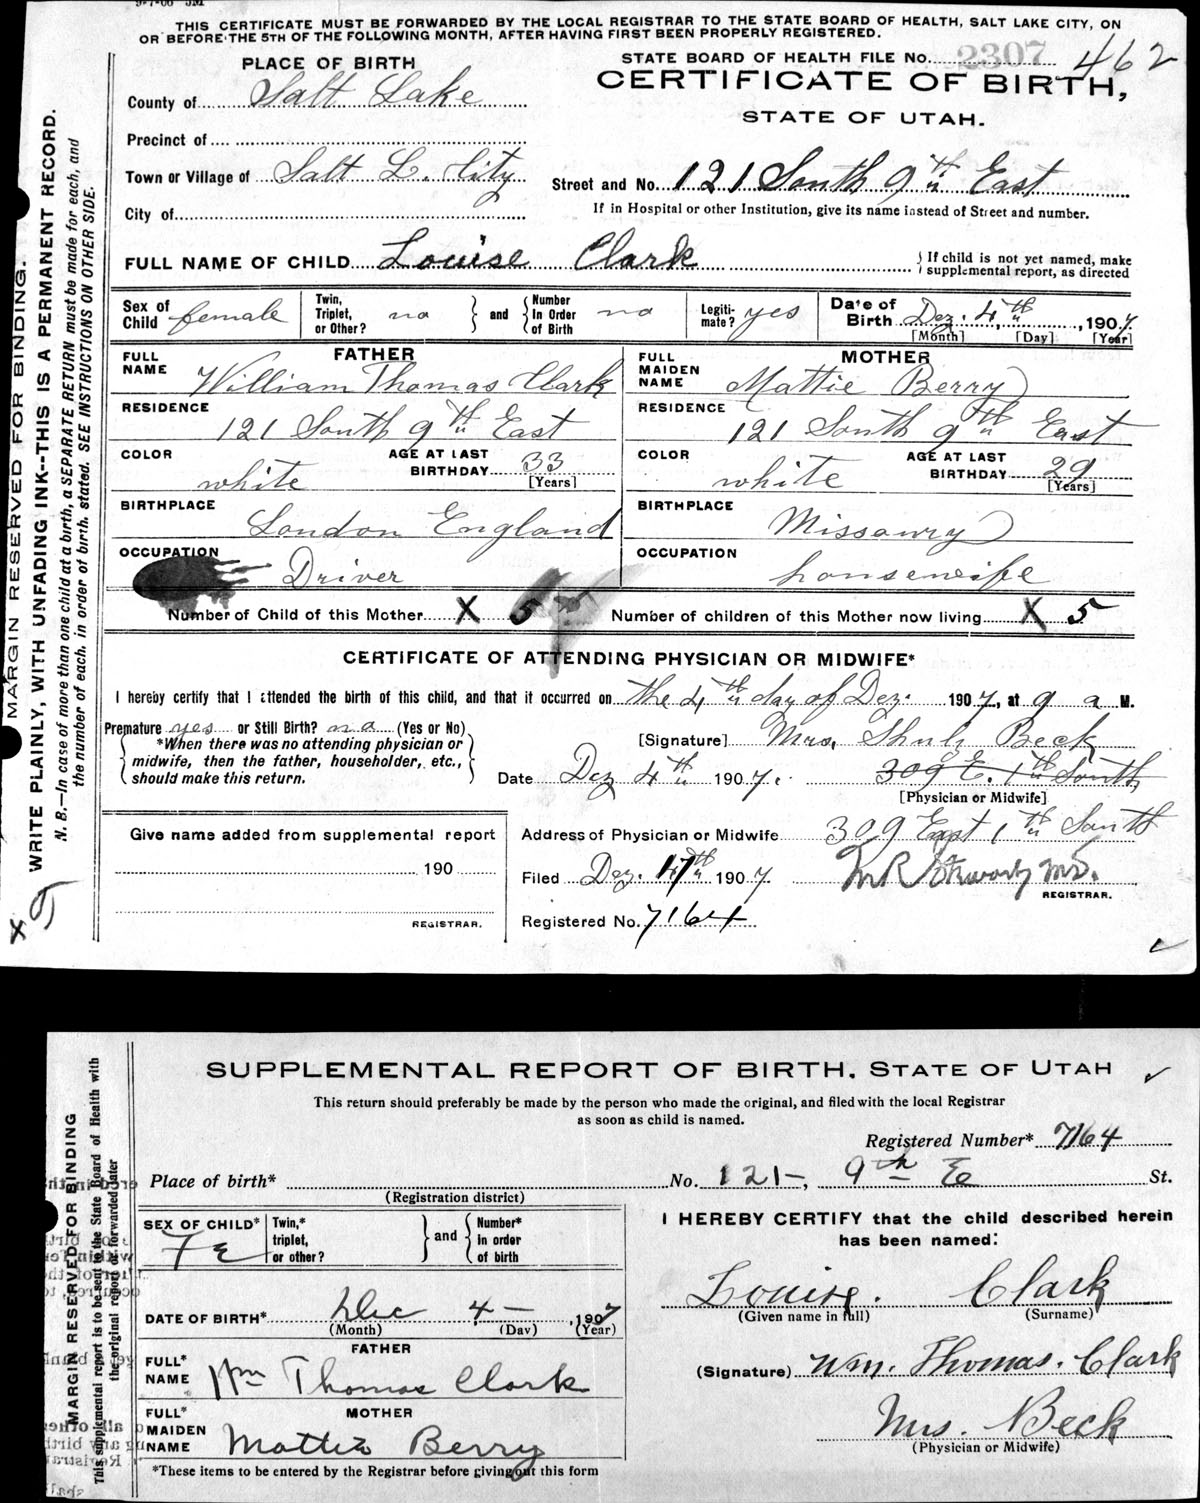 9-7-06 5M
THIS CERTIFICATE MUST BE FORWARDED BY THE LOCAL REGISTRAR TO THE STATE BOARD OF HEALTH, SALT LAKE CITY, ON
OR BEFORE THE 5TH OF THE FOLLOWING MONTH, AFTER HAVING FIRST BEEN PROPERLY REGISTERED.
STATE BOARD OF HEALTH FILE No. 2307 462
CERTIFICATE OF BIRTH,
STATE OF UTAH.
PLACE OF BIRTH
County of Salt Lake
Precinct of
Town or Village of Salt L. City
City of
Street and No. 121 South 9th East
If in Hospital or other Institution, give its name instead of Street and number.
FULL NAME OF CHILD Louise Clark
If child is not yet named, make
supplemental report, as directed
Sex of
Child female
Twin,
Triplet,
or Other? no
and
Number
In Order
of Birth no
Legiti-
mate? yes
Date of
Birth Dez. 4th, 1907.
[Month] [Day] [Year]
FATHER
FULL
NAME William Thomas Clark
RESIDENCE
121 South 9th East
COLOR
white
AGE AT LAST
BIRTHDAY 33
[Years]
BIRTHPLACE
London England
OCCUPATION
Driver
MOTHER
FULL
MAIDEN
NAME Mattie Berry
RESIDENCE
121 South 9th East
COLOR
white
AGE AT LAST
BIRTHDAY 29
[Years]
BIRTHPLACE
Missowry
OCCUPATION
housewife
Number of Child of this Mother X 5
Number of children of this Mother now living X 5
CERTIFICATE OF ATTENDING PHYSICIAN OR MIDWIFE*
I hereby certify that I attended the birth of this child, and that it occurred on the 4th day of Dez. 1907, at 9 a M.
Premature yes or Still Birth? no (Yes or No)
*When there was no attending physician or
midwife, then the father, householder, etc.,
should make this return.
[Signature] Mrs. Beck
Date Dez 4th 1907.
309 E. 1th South
[Physician or Midwife]
Give name added from supplemental report
190
REGISTRAR.
Address of Physician or Midwife 309 East 1th South
Filed Dez. 17th 1907
REGISTRAR.
Registered No. 7164
MARGIN RESERVED FOR BINDING.
WRITE PLAINLY, WITH UNFADING INK--THIS IS A PERMANENT RECORD.
N. B.—In case of more than one child at a birth, a SEPARATE RETURN must be made for each, and
the number of each, in order of birth, stated. SEE INSTRUCTIONS ON OTHER SIDE.
SUPPLEMENTAL REPORT OF BIRTH, STATE OF UTAH
This return should preferably be made by the person who made the original, and filed with the local Registrar
as soon as child is named.
Registered Number* 7164
Place of birth* No. 121-, 9th E St.
(Registration district)
SEX OF CHILD*
Fe
Twin,*
triplet,
or other?
and
Number*
in order
of birth
DATE OF BIRTH* Dec 4- , 1907
(Month) (Day) (Year)
FATHER
FULL*
NAME Wm Thomas Clark
MOTHER
FULL*
MAIDEN
NAME Mattie Berry
*These items to be entered by the Registrar before giving out this form
I HEREBY CERTIFY that the child described herein
has been named:
Louise. Clark
(Given name in full) (Surname)
(Signature) Wm. Thomas. Clark
Mrs. Beck
(Physician or Midwife)
MARGIN RESERVED FOR BINDING
This supplemental report is to be sent to the State Board of Health with
the original report or forwarded later